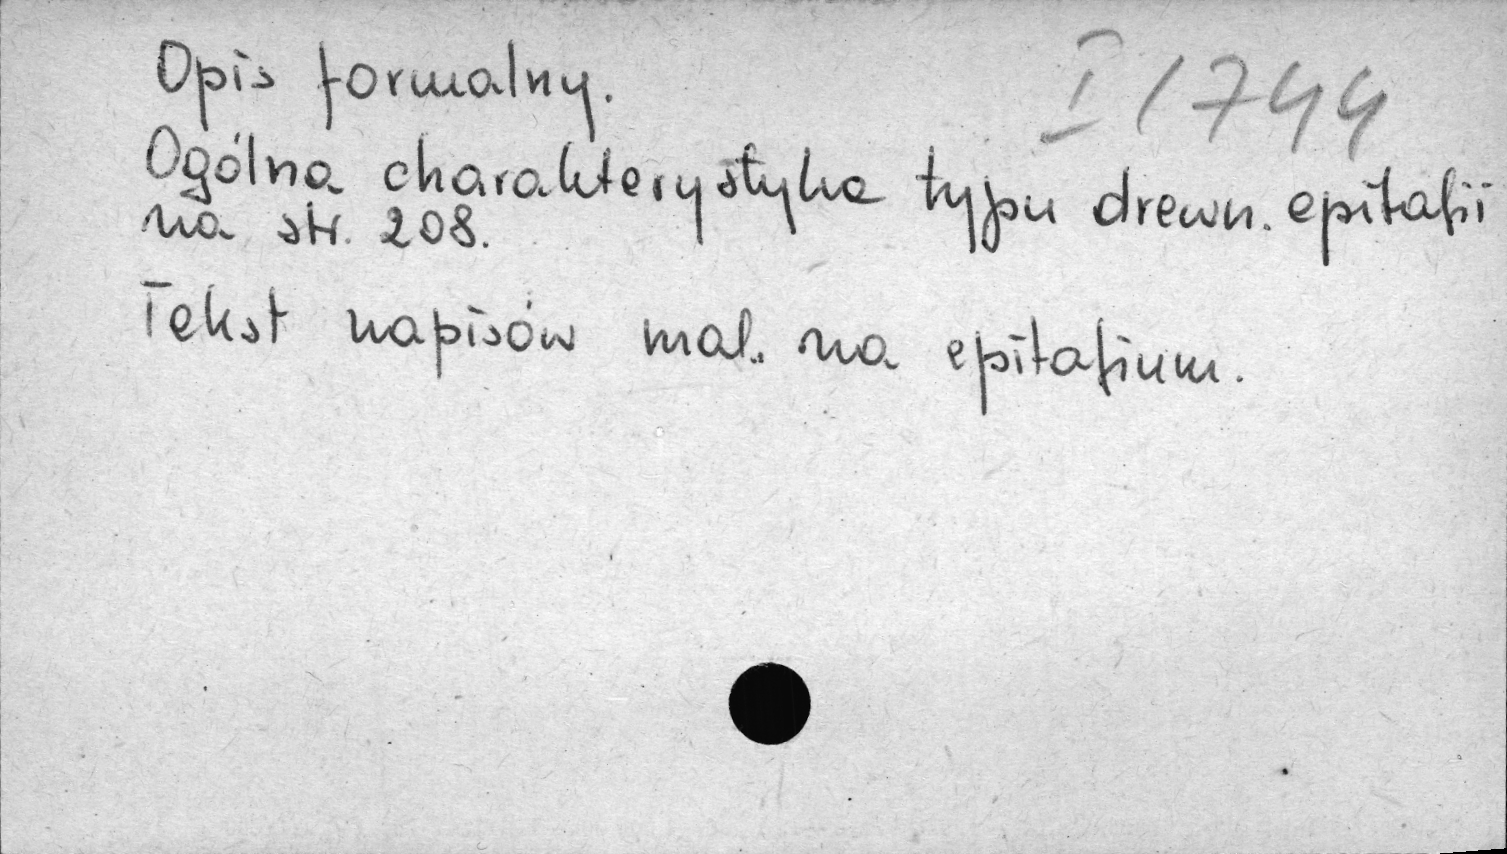 Opis formalny.
I/744
Ogólna charakterystyka typu drewn. epitafii
na str. 208.
Tekst napisów mal. na epitafium.